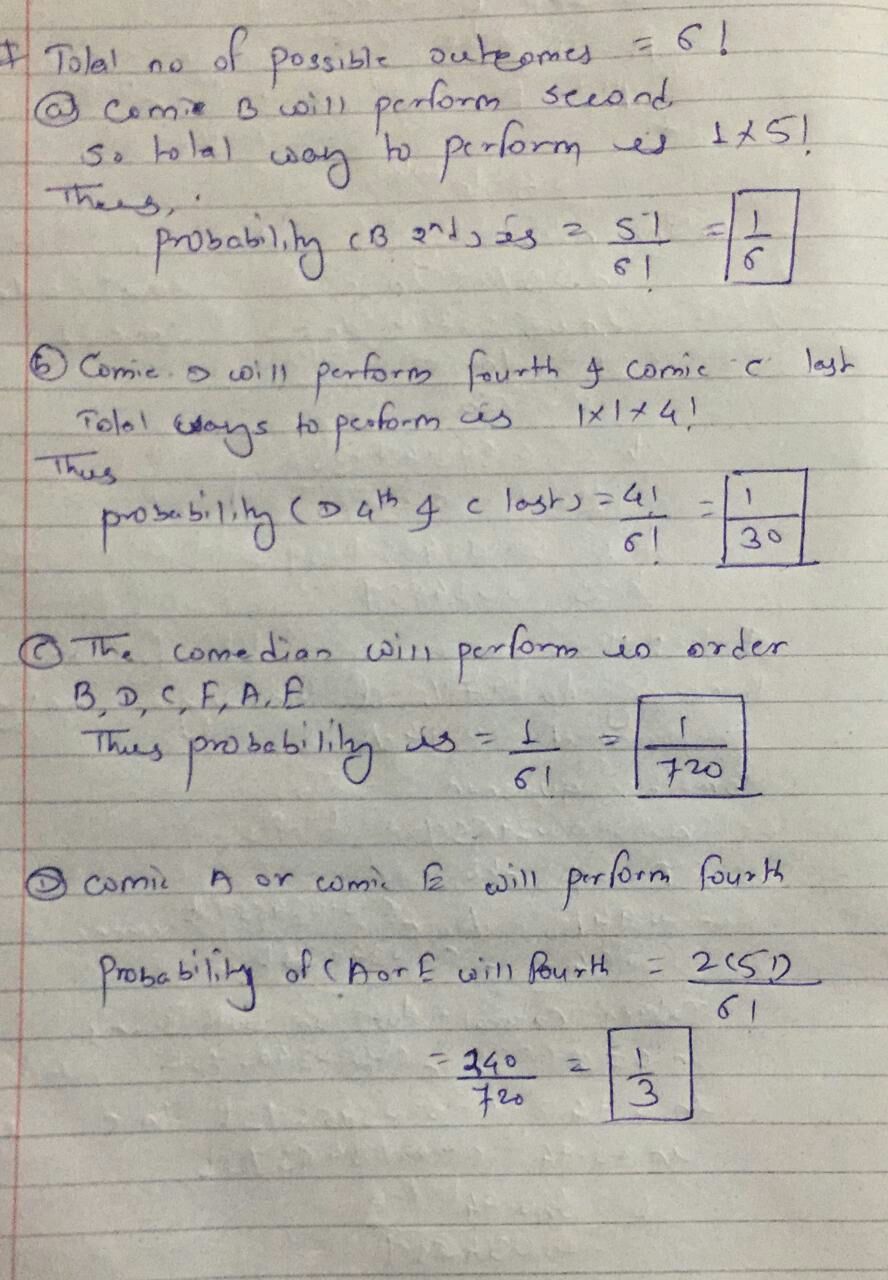 Total no of possible outcomes = 6!
(a) Comic B will perform second
So total way to perform is 1×5!
Thus,
probability (B 2nd) is = 5!/6! = 1/6
(b) Comic D will perform fourth & comic C last
Total ways to perform is 1×1×4!
Thus
probability (D 4th & C last) = 4!/6! = 1/30
(c) The comedian will perform in order
B, D, C, F, A, E
Thus probability is = 1/6! = 1/720
(D) comic A or comic E will perform fourth
Probability of (A or E will fourth = 2(5!)/6!
= 240/720 = 1/3